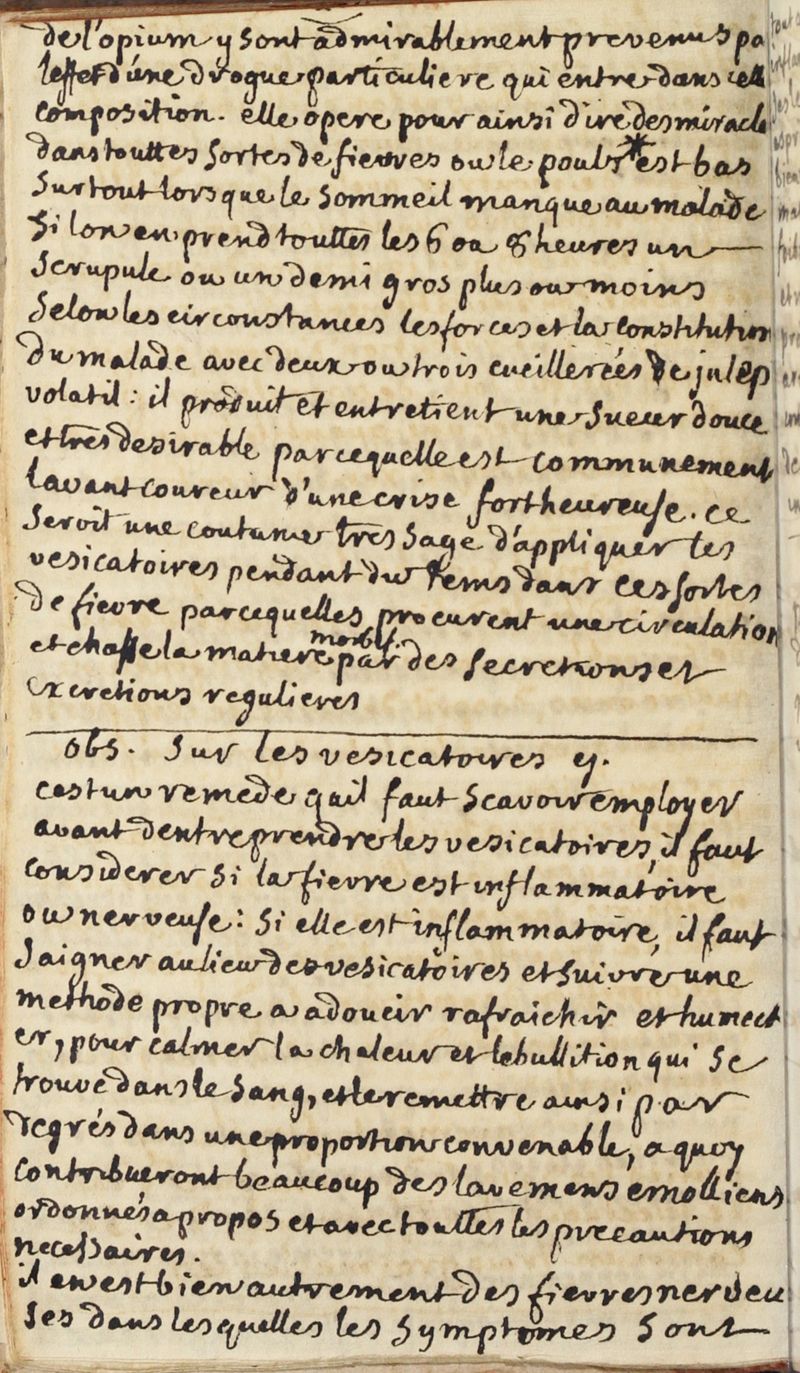 de l'opium y sont admirablement prevenus pa
leffet d'úne drogue particuliere qui entre dans cell
composition. elle opere pour ainsi dire des miracle
dans touttes sortes de fievres ou le pouls * est bas
surtout lorsque le sommeil manque au malade
si lon en prend touttes les 6 ou 8 heures un
scrupule ou un demi gros plus ou moins
selon les circonstances les forces et la constitution
du malade avec deux ou trois cueillerées de julep
volatil : il produit et entretient une sueur douce
et tres desirable parcequelle est communement
lavant coureur d'une crise fort heureuse. ce
seroit une coutume tres sage d'appliquer les
vesicatoires pendant du tems dans ces sortes
de fievre parcequelles procurent une circulation
et chasse la matiere morbif. par des secretions et
excretions regulieres
obs. sur les vesicatoires y.
cest un remede quil faut scavoir employer
avant dentreprendre les vesicatoires, il faut
considerer si la fievre est inflammatoire
ou nerveuse : si elle est inflammatoire, il faut
saigner au lieu des vesicatoires et suivre une
methode propre a adoucir rafraichir et humect
er, pour calmer la chaleur et lebullition qui se
trouve dans le sang, et le remettre ainsi par
degrés dans une proportion convenable, a quoy
contribueront beaucoup des lavemens emolliens
ordonnés a propos et avec touttes les precautions
necessaires.
il en est bien autrement des fievres nerveu
ses dans lesquelles les symptomes sont